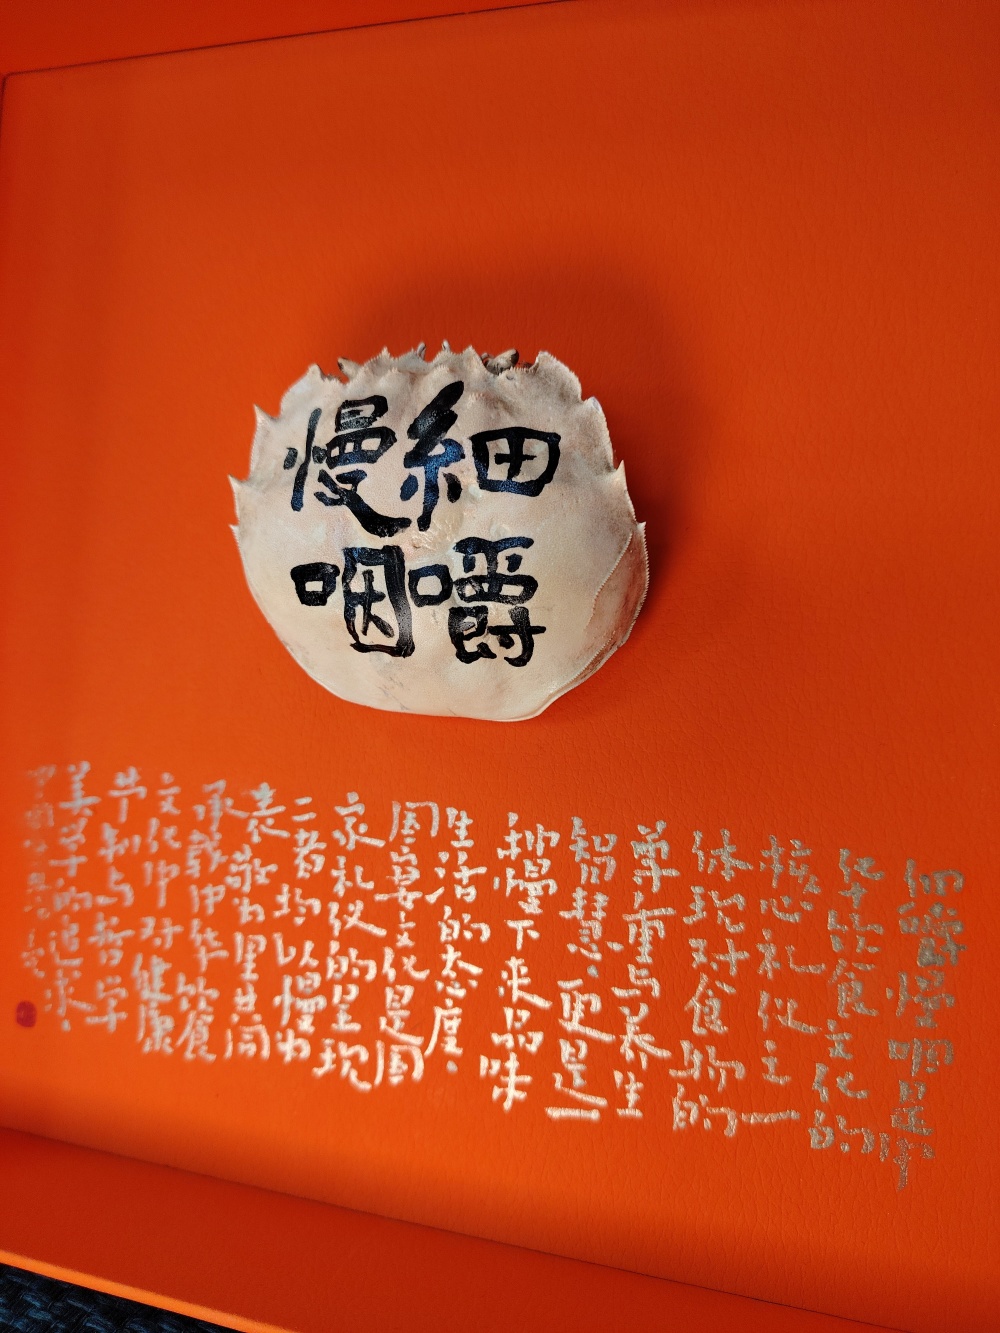 細嚼
慢咽
细嚼慢咽是中
华饮食文化的
核心礼仪之一
体现对食物的
尊重与养生
智慧,更是一
种慢下来品味
生活的态度。
国宴文化是国
家礼仪的呈现
二者均以慢为
表敬为里共同
承载中华饮食
文化中对健康
节制与哲学
美学的追求。